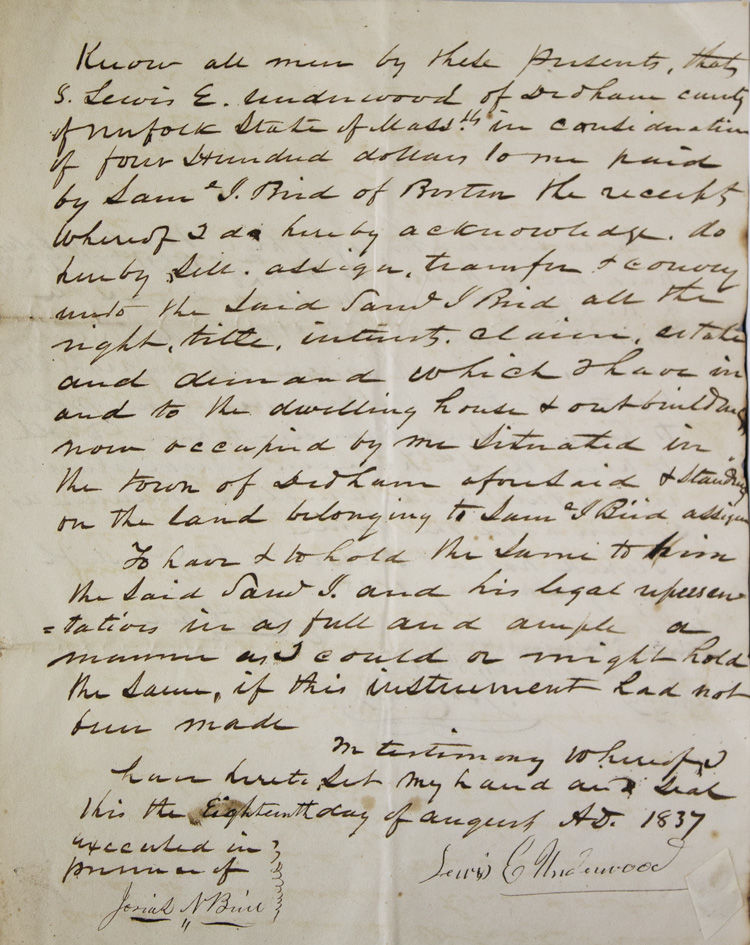 Know all men by these presents, that
I. Lewis E. Underwood of Dedham county
of Norfolk State of Mass.ts in consideration
of four Hundred dollars to me paid
by Saml I. Bird of Boston the receipt
Whereof I do hereby acknowledge. do
hereby Sell. assign, transfer & convey
unto the Said Saml I Bird all the
right, title, interest. claim, estate
and demand which I have in
and to the dwelling house & outbuildings
now occupied by me Situated in
the town of Dedham aforesaid & standing
on the land belonging to Saml I Bird assigns
To have & to hold the Same to him
the Said Saml I. and his legal represen
=tatives in as full and ample a
manner as I could or might hold
the Same, if this instrument had not
been made
In testimony Whereof I
have hereto Set my hand and Seal
this the Eighteenth day of august AD. 1837
executed in
presence of
Lewis E Underwood
Josiah N